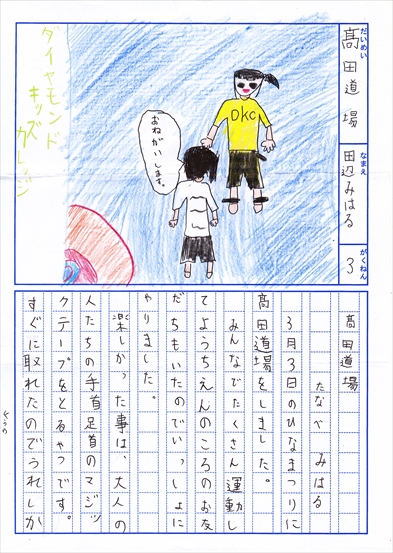 だいめい
髙田道場
なまえ
田辺みはる
がくねん
3
ダイヤモンド
キッズ
カレッジ
DKC
おねがいします。
髙田道場
たなべ みはる
3月3日のひなまつりに
髙田道場をしました。
みんなでたくさん運動し
てようちえんのころのお友
だちもいたのでいっしょに
やりました。
楽しかった事は、大人の
人たちの手首足首のマジッ
クテープをとるやつです。
すぐに取れたのでうれしか